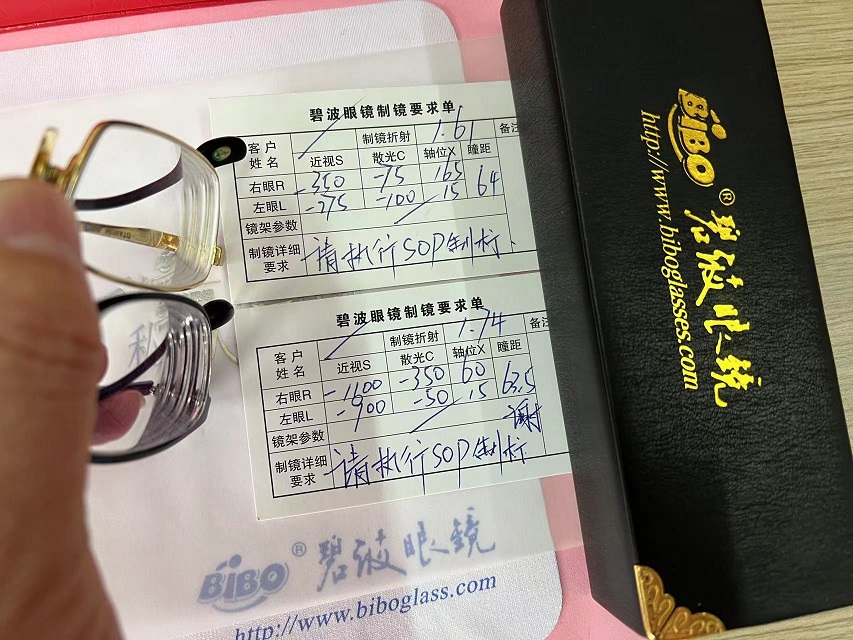 碧波眼镜制镜要求单
客户姓名 制镜折射 1.61 备注
近视S 散光C 轴位X 瞳距
右眼R -350 -75 165 64
左眼L -275 -100 15
镜架参数
制镜详细要求 请执行SOP制标.
碧波眼镜制镜要求单
客户姓名 制镜折射 1.74 备注
近视S 散光C 轴位X 瞳距
右眼R -1100 -350 60 63.5
左眼L -900 -50 15
镜架参数 谢
制镜详细要求 请执行SOP制标
BiBO® 碧波眼镜
http://www.biboglass.com
BiBO® 碧波眼镜
http://www.biboglasses.com